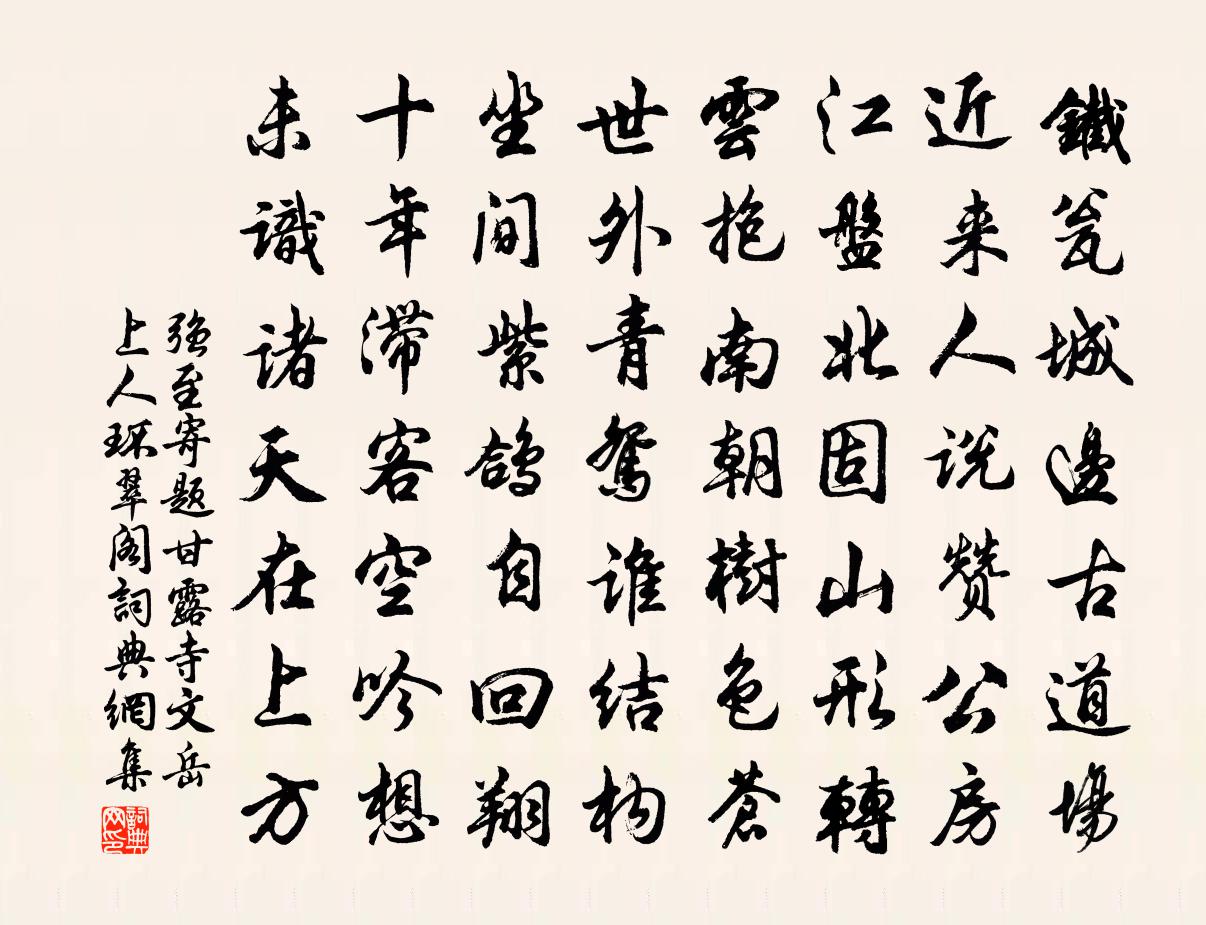 鐵瓮城邊古道場
近来人说赞公房
江盤北固山形轉
雲抱南朝樹色蒼
世外青鴛谁结构
坐间紫鴿自回翔
十年滞客空吟想
未識诸天在上方
强至寄题甘露寺文岳
上人环翠阁詞典網集
詞典网印